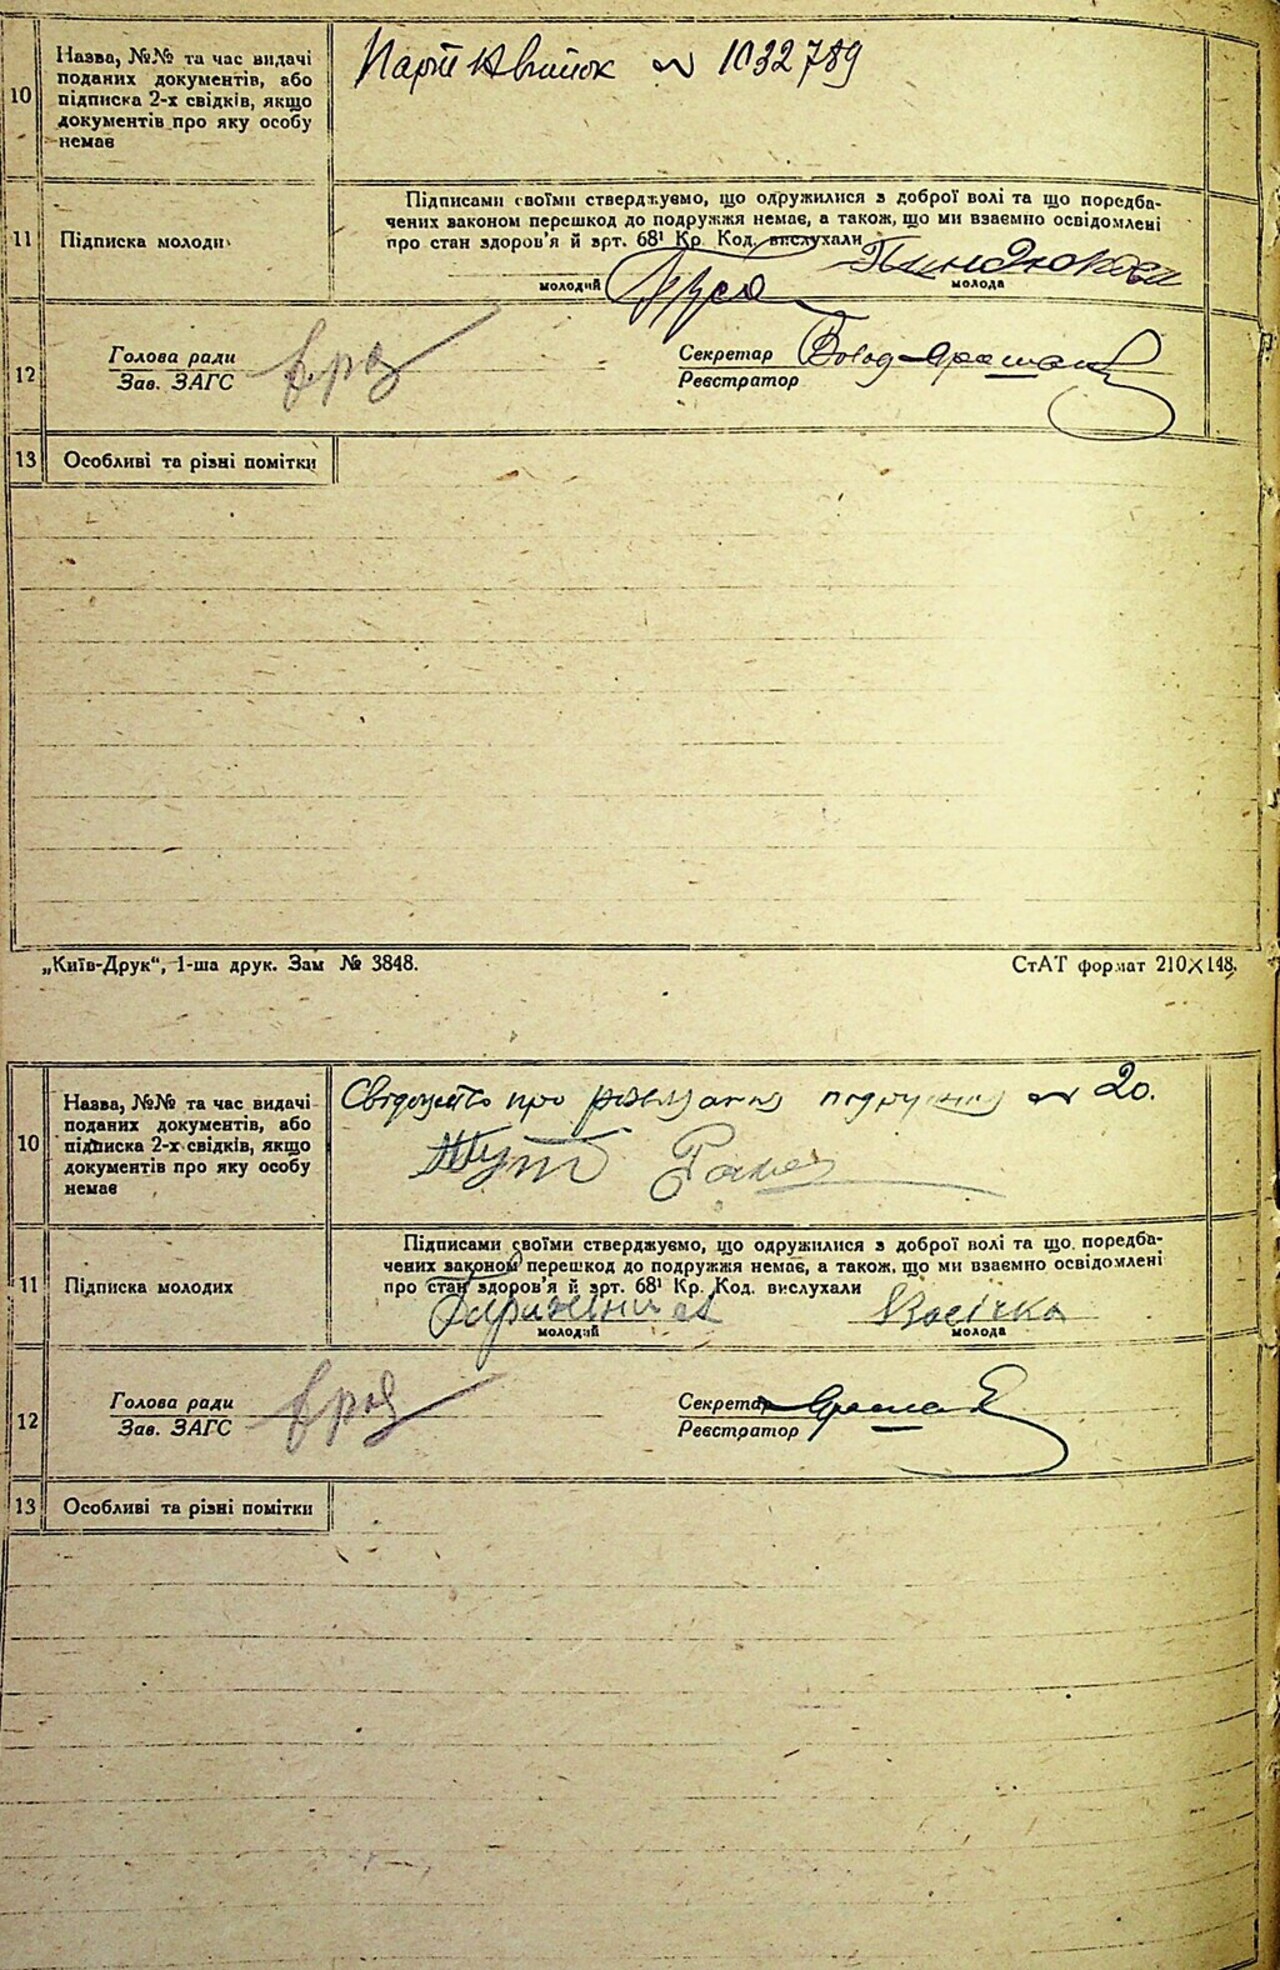 10
Назва, №№ та час видачі
поданих документів, або
підписка 2-х свідків, якщо
документів про яку особу
немає
Парт квиток № 1032789
11
Підписка молоди
Підписами своїми стверджуємо, що одружилися з доброї волі та що передба-
чених законом перешкод до подружжя немає, а також, що ми взаємно освідомлені
про стан здоров'я й арт. 68¹ Кр. Код. вислухали
молодий
молода
12
Голова ради
Зав. ЗАГС
Секретар
Реєстратор
13
Особливі та різні помітки
„Київ-Друк“, 1-ша друк. Зам № 3848.
СтАТ формат 210×148.
10
Назва, №№ та час видачі
поданих документів, або
підписка 2-х свідків, якщо
документів про яку особу
немає
про подружжя № 20.
11
Підписка молодих
Підписами своїми стверджуємо, що одружилися з доброї волі та що передба-
чених законом перешкод до подружжя немає, а також, що ми взаємно освідомлені
про стан здоров'я й арт. 68¹ Кр. Код. вислухали
молодий
молода
12
Голова ради
Зав. ЗАГС
Секретар
Реєстратор
13
Особливі та різні помітки